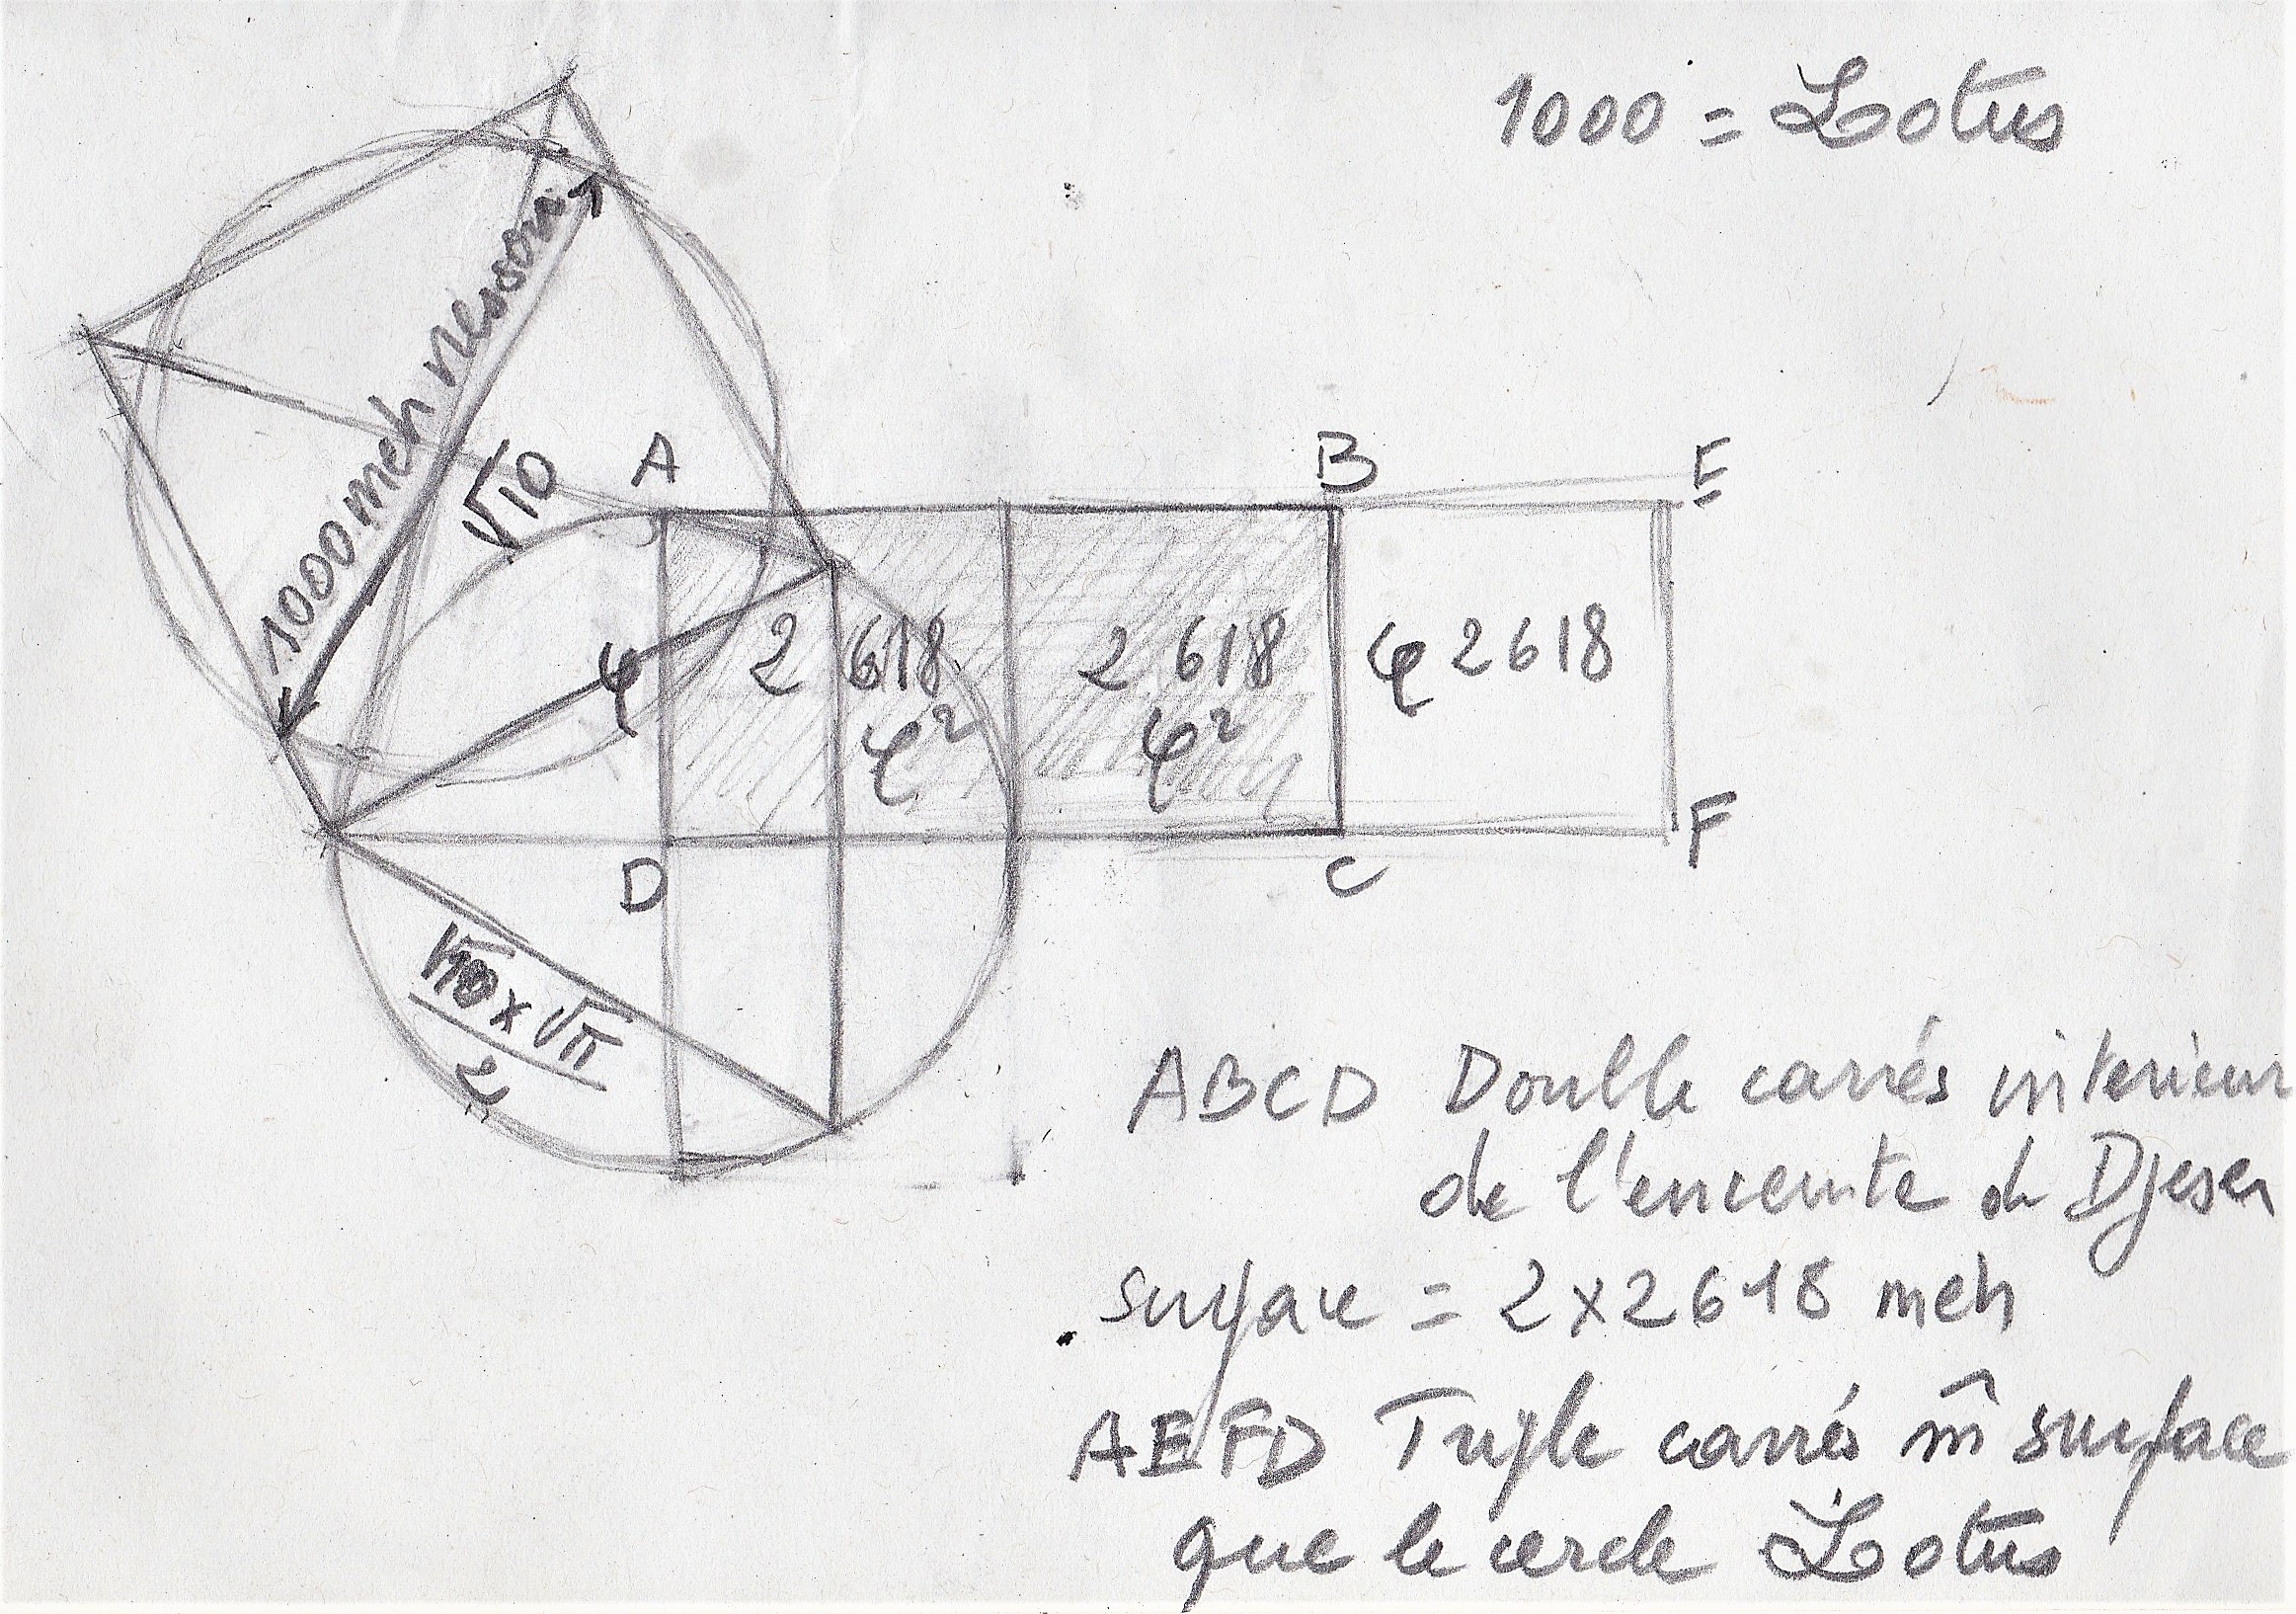 1000 = Lotus
1000 meh nesout
√10
A
B
E
φ
2 618
φ²
2 618
φ²
φ 2618
D
C
F
√10 x √π
2
ABCD Double carrés interieur
de l'enceinte de Djeser
surface = 2x2618 meh
AEFD Triple carrés m̂ surface
que le cercle Lotus